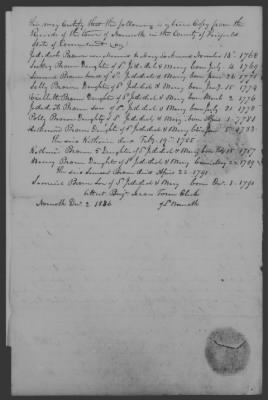 This may Certify that the following is a true Copy from the
Records of the town of Norwalk in the County of Fairfield
State of Connecticut viz
Jedidiah Brown was married to Mary November 18th 1768
Daughter of Sd Jedidiah & Mary born July 4 1769
Samuel Brown Son of Sd Jedidiah & Mary born June 26
Sally Brown Daughter of Sd Jedidiah & Mary born 15 1774
Brown Daughter of Sd Jedidiah & Mary born March 2 1776
Jedidiah Brown Son of Sd Jedidiah & Mary born July 21 1778
Polly Brown Daughter of Sd Jedidiah & Mary born April 1781
Katharine Brown Daughter of Sd Jedidiah & Mary 1783
The said Katharine died Feby 19th 1785
Katharine Brown Daughter of Sd Jedidiah & Mary born 15 1787
Nancy Brown Daughter of Sd Jedidiah & Mary born May 22 1789
The said Samuel Brown died April 22 1791
Samuel Brown Son of Sd Jedidiah & Mary born Dec. 1. 1790
Attest Town Clerk
Norwalk Dec. 2 1836 of Norwalk